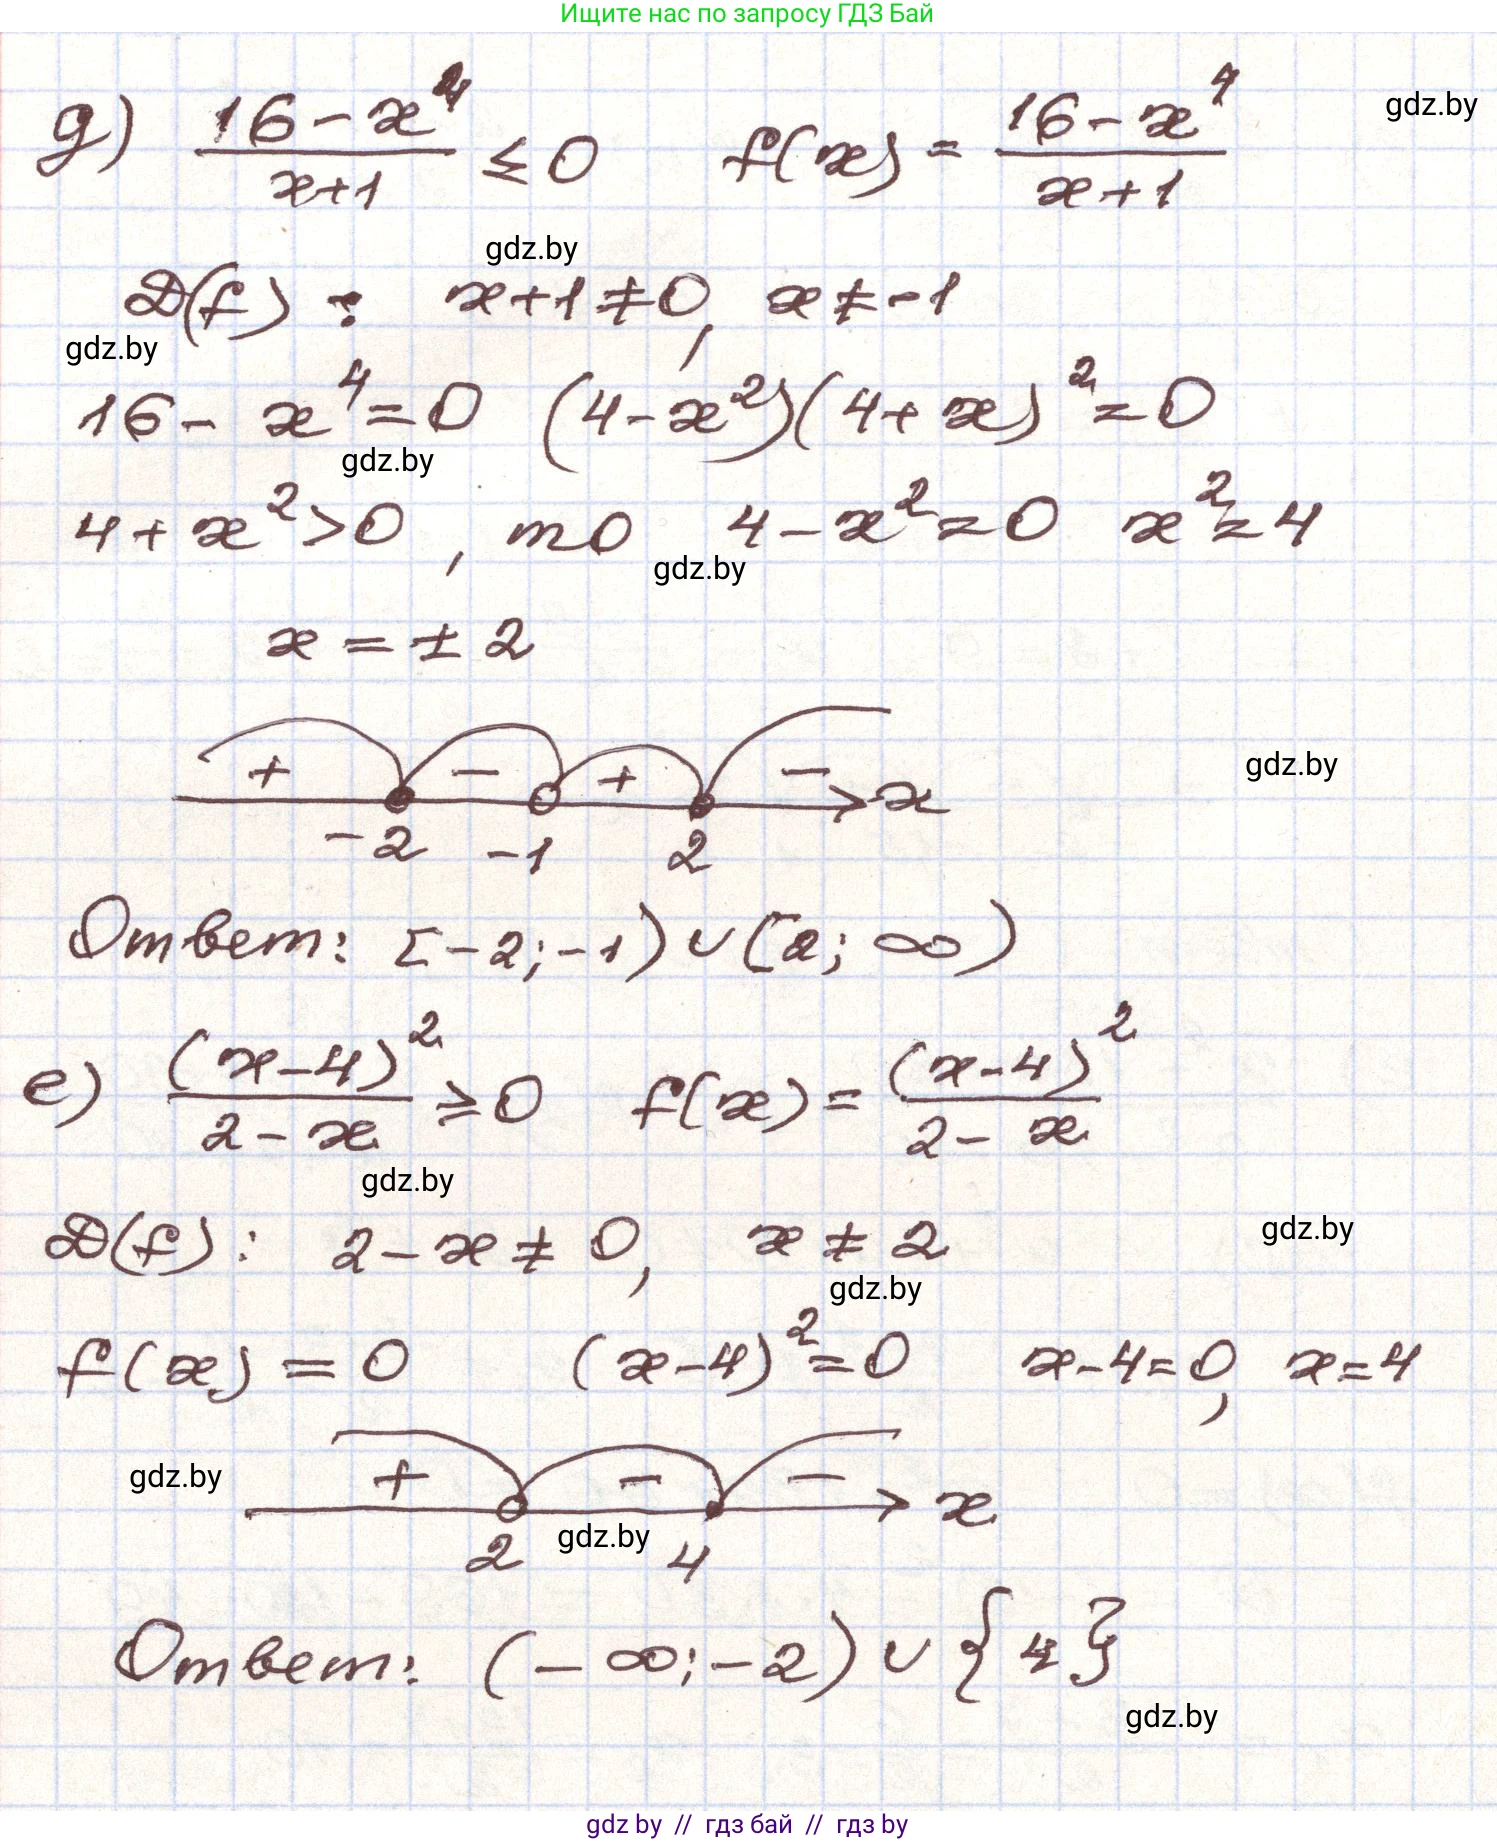 Ищите нас по запросу ГДЗ Бай
д) (16 - x⁴)/(x+1) ≤ 0   f(x) = (16 - x⁴)/(x+1)
gdz.by
gdz.by
D(f) : x+1 ≠ 0, x ≠ -1
gdz.by
16 - x⁴ = 0 (4 - x²)(4 + x)² = 0
gdz.by
4 + x² > 0, то 4 - x² = 0 x² = 4
gdz.by
x = ± 2
+ − + − x
gdz.by
-2 -1 2
Ответ: [-2; -1) ∪ [2; ∞)
е) (x-4)²/(2-x) ≥ 0   f(x) = (x-4)²/(2-x)
gdz.by
D(f): 2 - x ≠ 0, x ≠ 2
gdz.by
gdz.by
f(x) = 0 (x-4)² = 0 x-4=0, x=4
gdz.by
+ − − x
2 gdz.by 4
Ответ: (-∞; -2) ∪ {4}
gdz.by
gdz by // гдз бай // гдз by